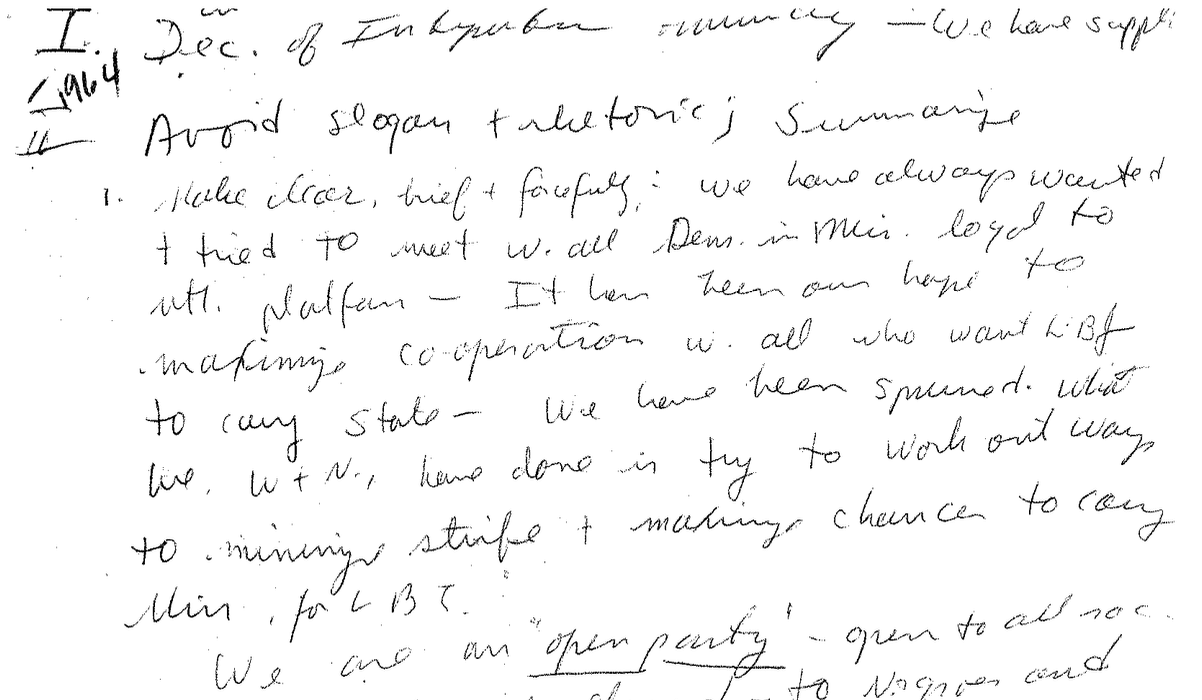 I. Dec. of Independen summary — We have suppli
1964
II Avoid slogan + rhetoric; Summarize
1. Make clear, brief + forcefully: we have always wanted
+ tried to meet w. all Dems. in Miss. loyal to
natl. platform — It has been our hope to
maximize co-operation w. all who want LBJ
to carry State — We have been spurned. What
we, W + N., have done is try to work out ways
to minimize strife + maximize chances to carry
Miss. for LBJ.
We are an "open party" - open to all rac
to Negroes and